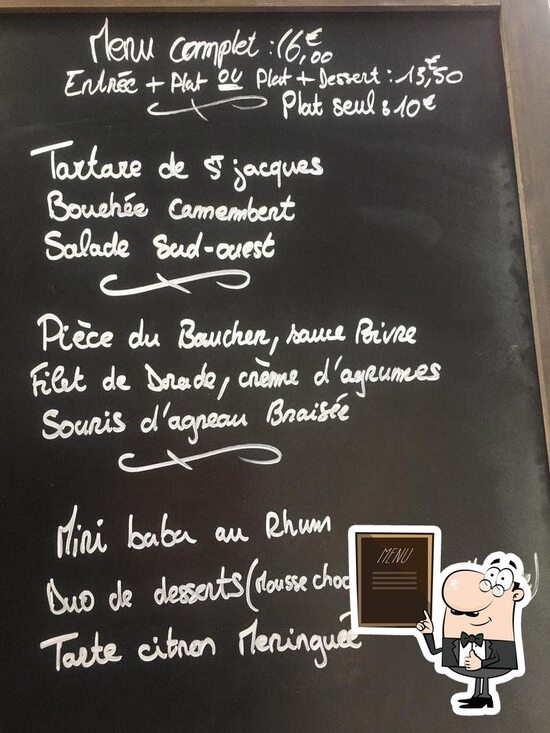 Menu complet : 16,00€
Entrée + Plat ou Plat + Dessert : 13,50€
Plat seul : 10€
Tartare de St jacques
Bouchée Camembert
Salade Sud-ouest
Pièce du Boucher, sauce Poivre
Filet de Dorade, crème d'agrumes
Souris d'agneau Braisée
Mini baba au Rhum
Duo de desserts (Mousse choc
Tarte citron Meringuée
MENU